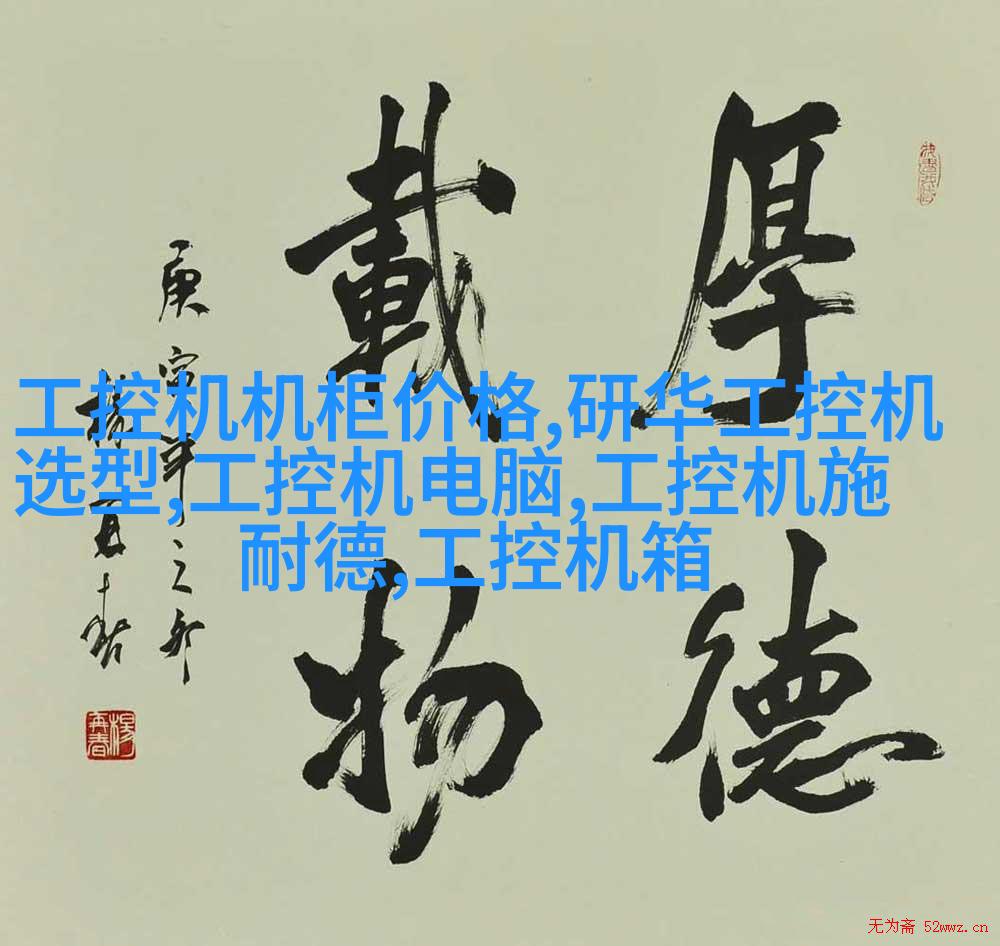 厚德
載物
庚寅年之卯
楊再春
楊再春
工控机机柜价格,研华工控机
选型,工控机电脑,工控机施
耐德,工控机箱
无为斋 52wwz.cn